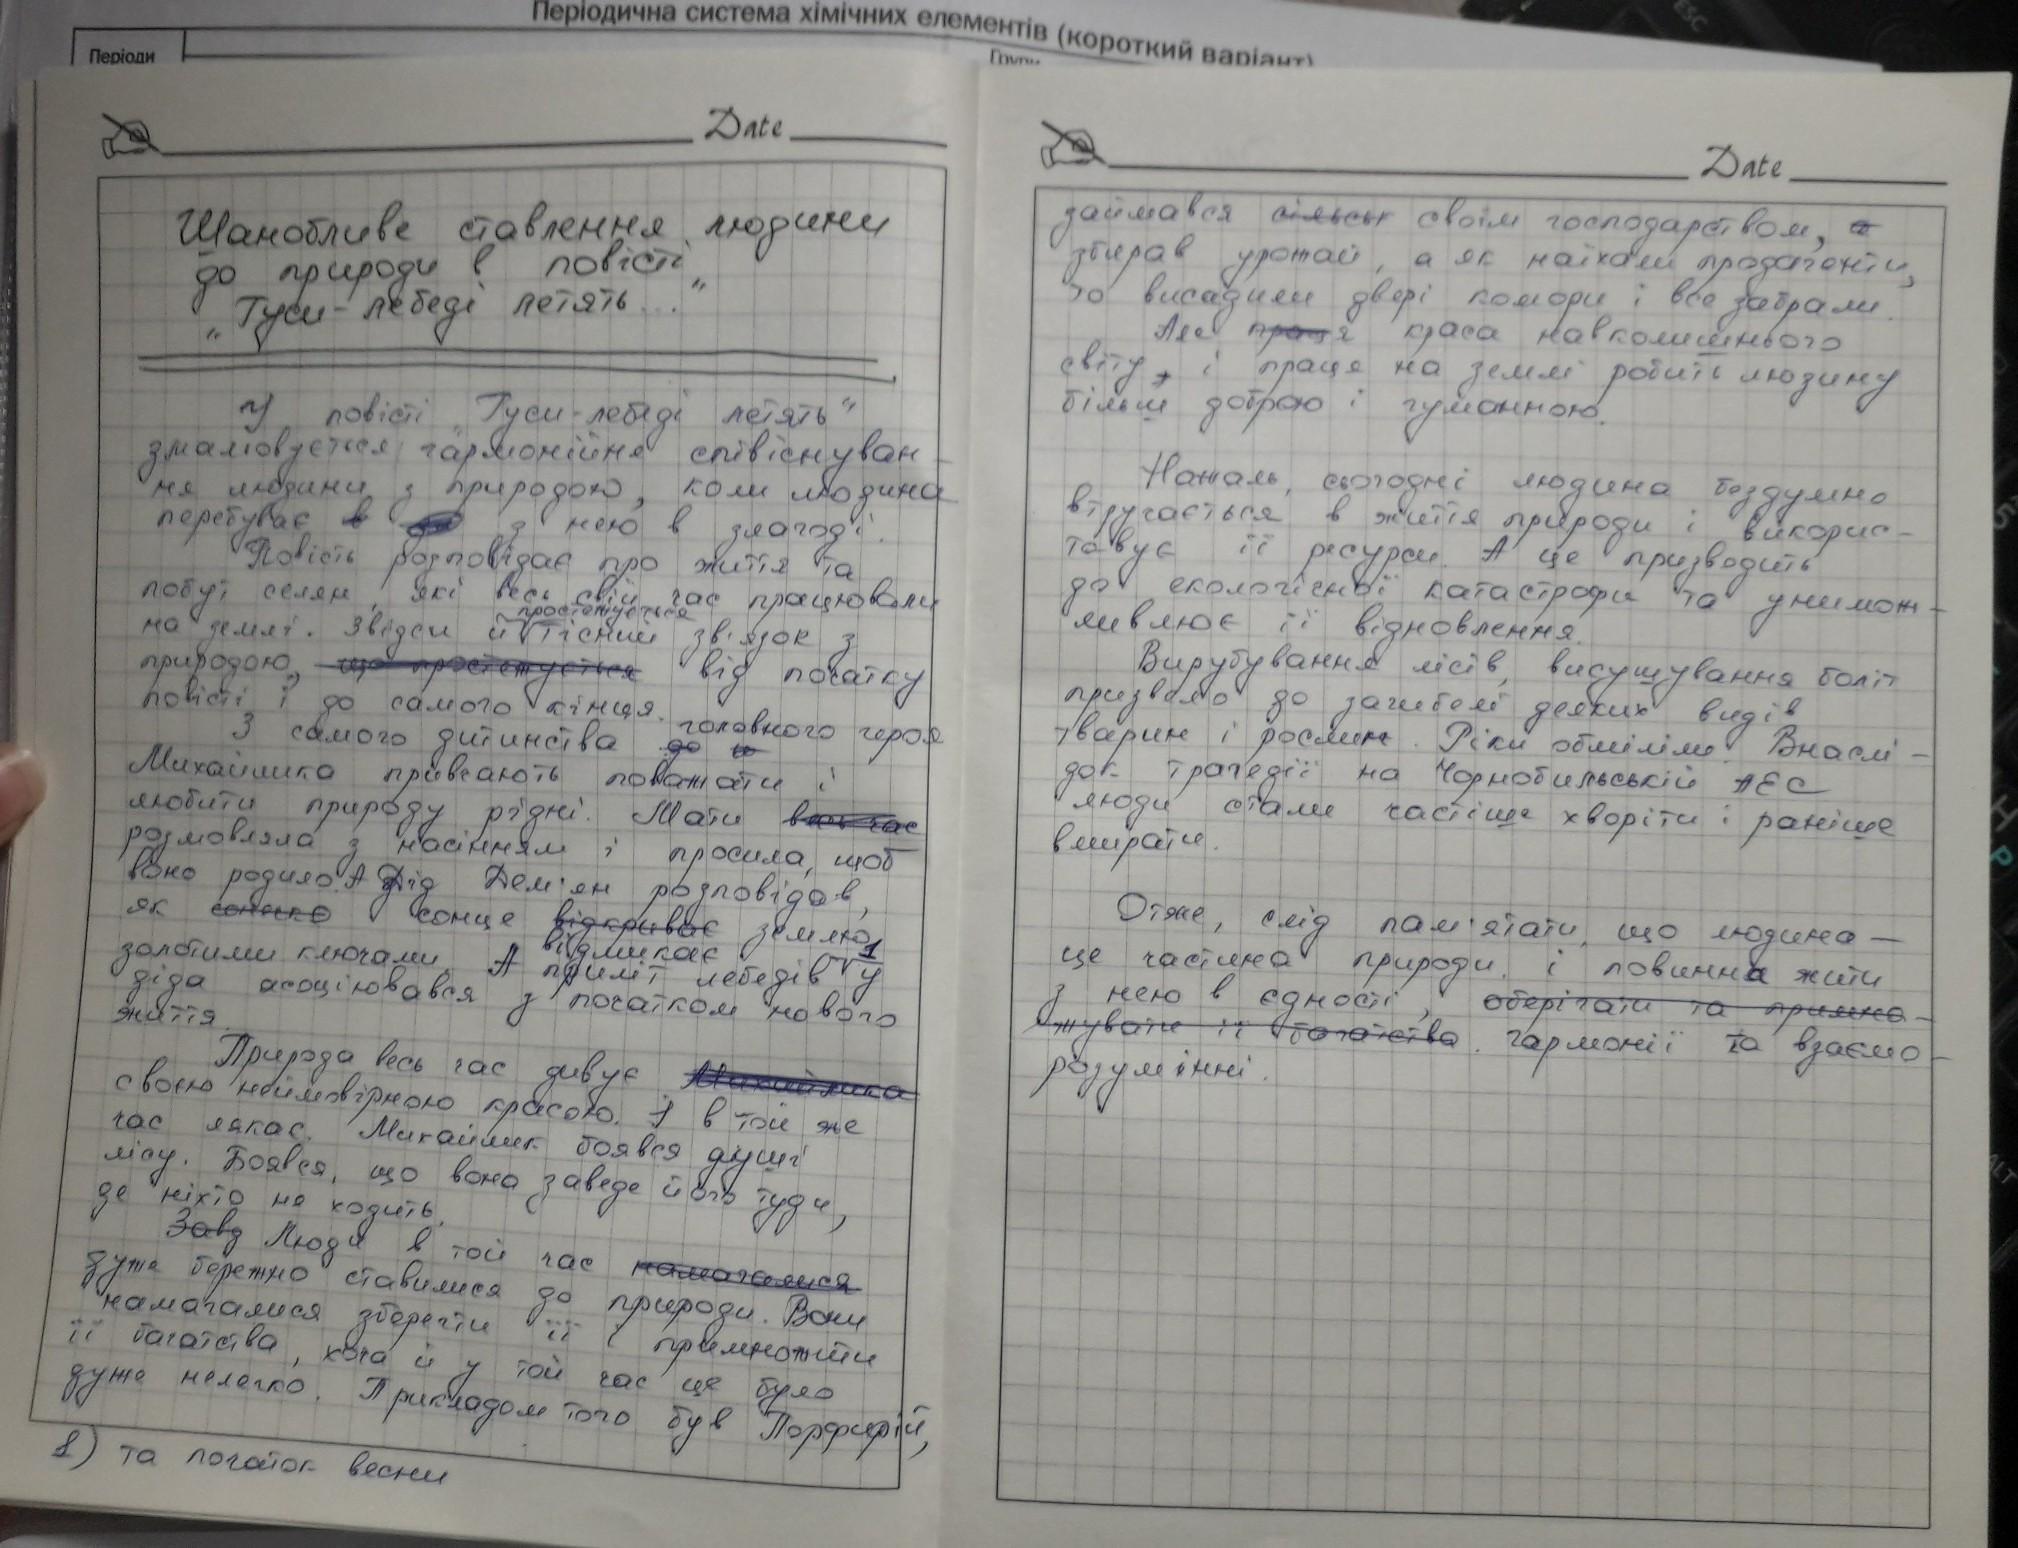 Періодична система хімічних елементів (короткий варіант)
Періоди
Групи
ESC
Date
Шанобливе ставлення людини
до природи в повісті
„Гуси-лебеді летять..."
У повісті „Гуси-лебеді летять"
змальовується гармонійне співіснуван-
ня людини з природою, коли людина
перебуває в з нею в злагоді.
Повість розповідає про життя та
побут селян, які весь свій час працювали
простежується
на землі. Звідси й тісний зв'язок з
природою, що простежується від початку
повісті і до самого кінця.
З самого дитинства до головного героя
Михайлика привчають поважати і
любити природу рідні. Мати весь час
розмовляла з насінням і просила, щоб
воно родило. А Дід Дем'ян розповідав,
як сонечко сонце відкриває землю
відмикає
золотими ключами. А приліт лебедів 1 у
діда асоціювався з початком нового
життя.
Природа весь час дивує Михайлика
своєю неймовірною красою. І в той же
час лякає. Михайлик боявся душі
лісу. Боявся, що вона заведе його туди,
де ніхто не ходить.
Завд Люди в той час намагалися
дуже бережно ставилися до природи. Вони
намагалися зберегти її і примножити
її багатства, хоча й у той час це було
дуже нелегко. Прикладом того був Порфирій,
1) та початок весни
Date
займався сільськ своїм господарством, а
збирав урожай, а як наїхали продагенти,
то висадили двері комори і все забрали.
Але праця краса навколишнього
світу, і праця на землі робить людину
більш доброю і гуманною.
Нажаль, сьогодні людина бездумно
втручається в життя природи і викорис-
товує її ресурси. А це призводить
до екологічної катастрофи та унимож-
ливлює її відновлення.
Вирубування лісів, висушування боліт
призвело до загибелі деяких видів
тварин і рослин. Ріки обміліли. Внаслі-
док трагедії на Чорнобильській АЕС
люди стали частіше хворіти і раніше
вмирати.
Отже, слід пам'ятати, що людина —
це частина природи, і повинна жити
з нею в єдності, оберігати та примно-
жувати її багатства. гармонії та взаємо-
розумінні.